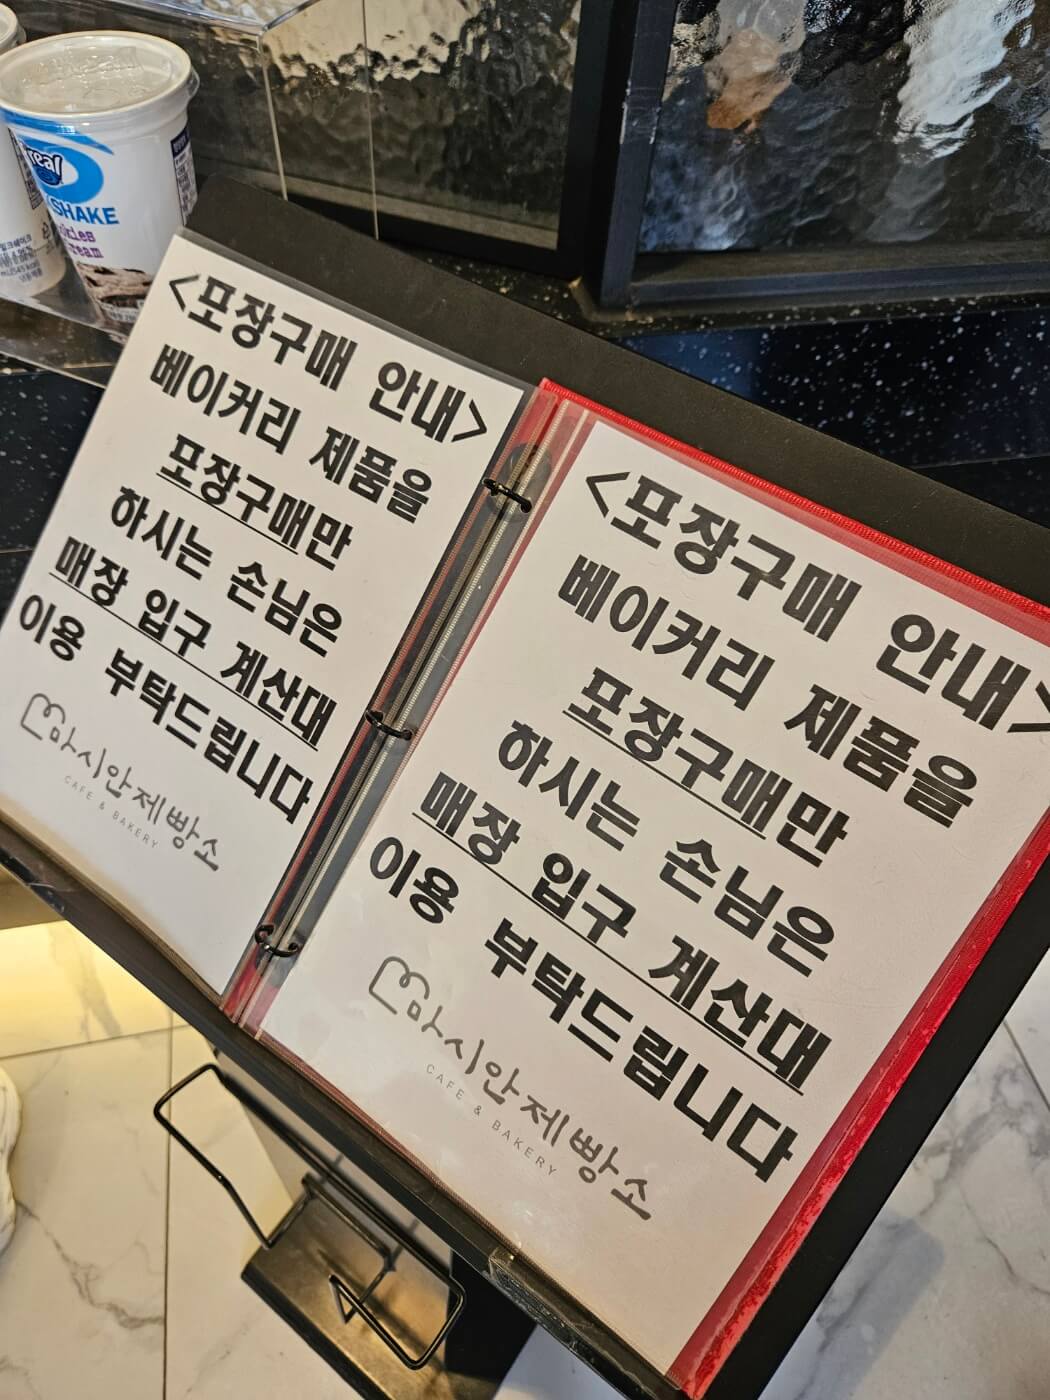 real
SHAKE
<포장구매 안내>
베이커리 제품을
포장구매만
하시는 손님은
매장 입구 계산대
이용 부탁드립니다
마시안제빵소
CAFE & BAKERY
<포장구매 안내>
베이커리 제품을
포장구매만
하시는 손님은
매장 입구 계산대
이용 부탁드립니다
마시안제빵소
CAFE & BAKERY